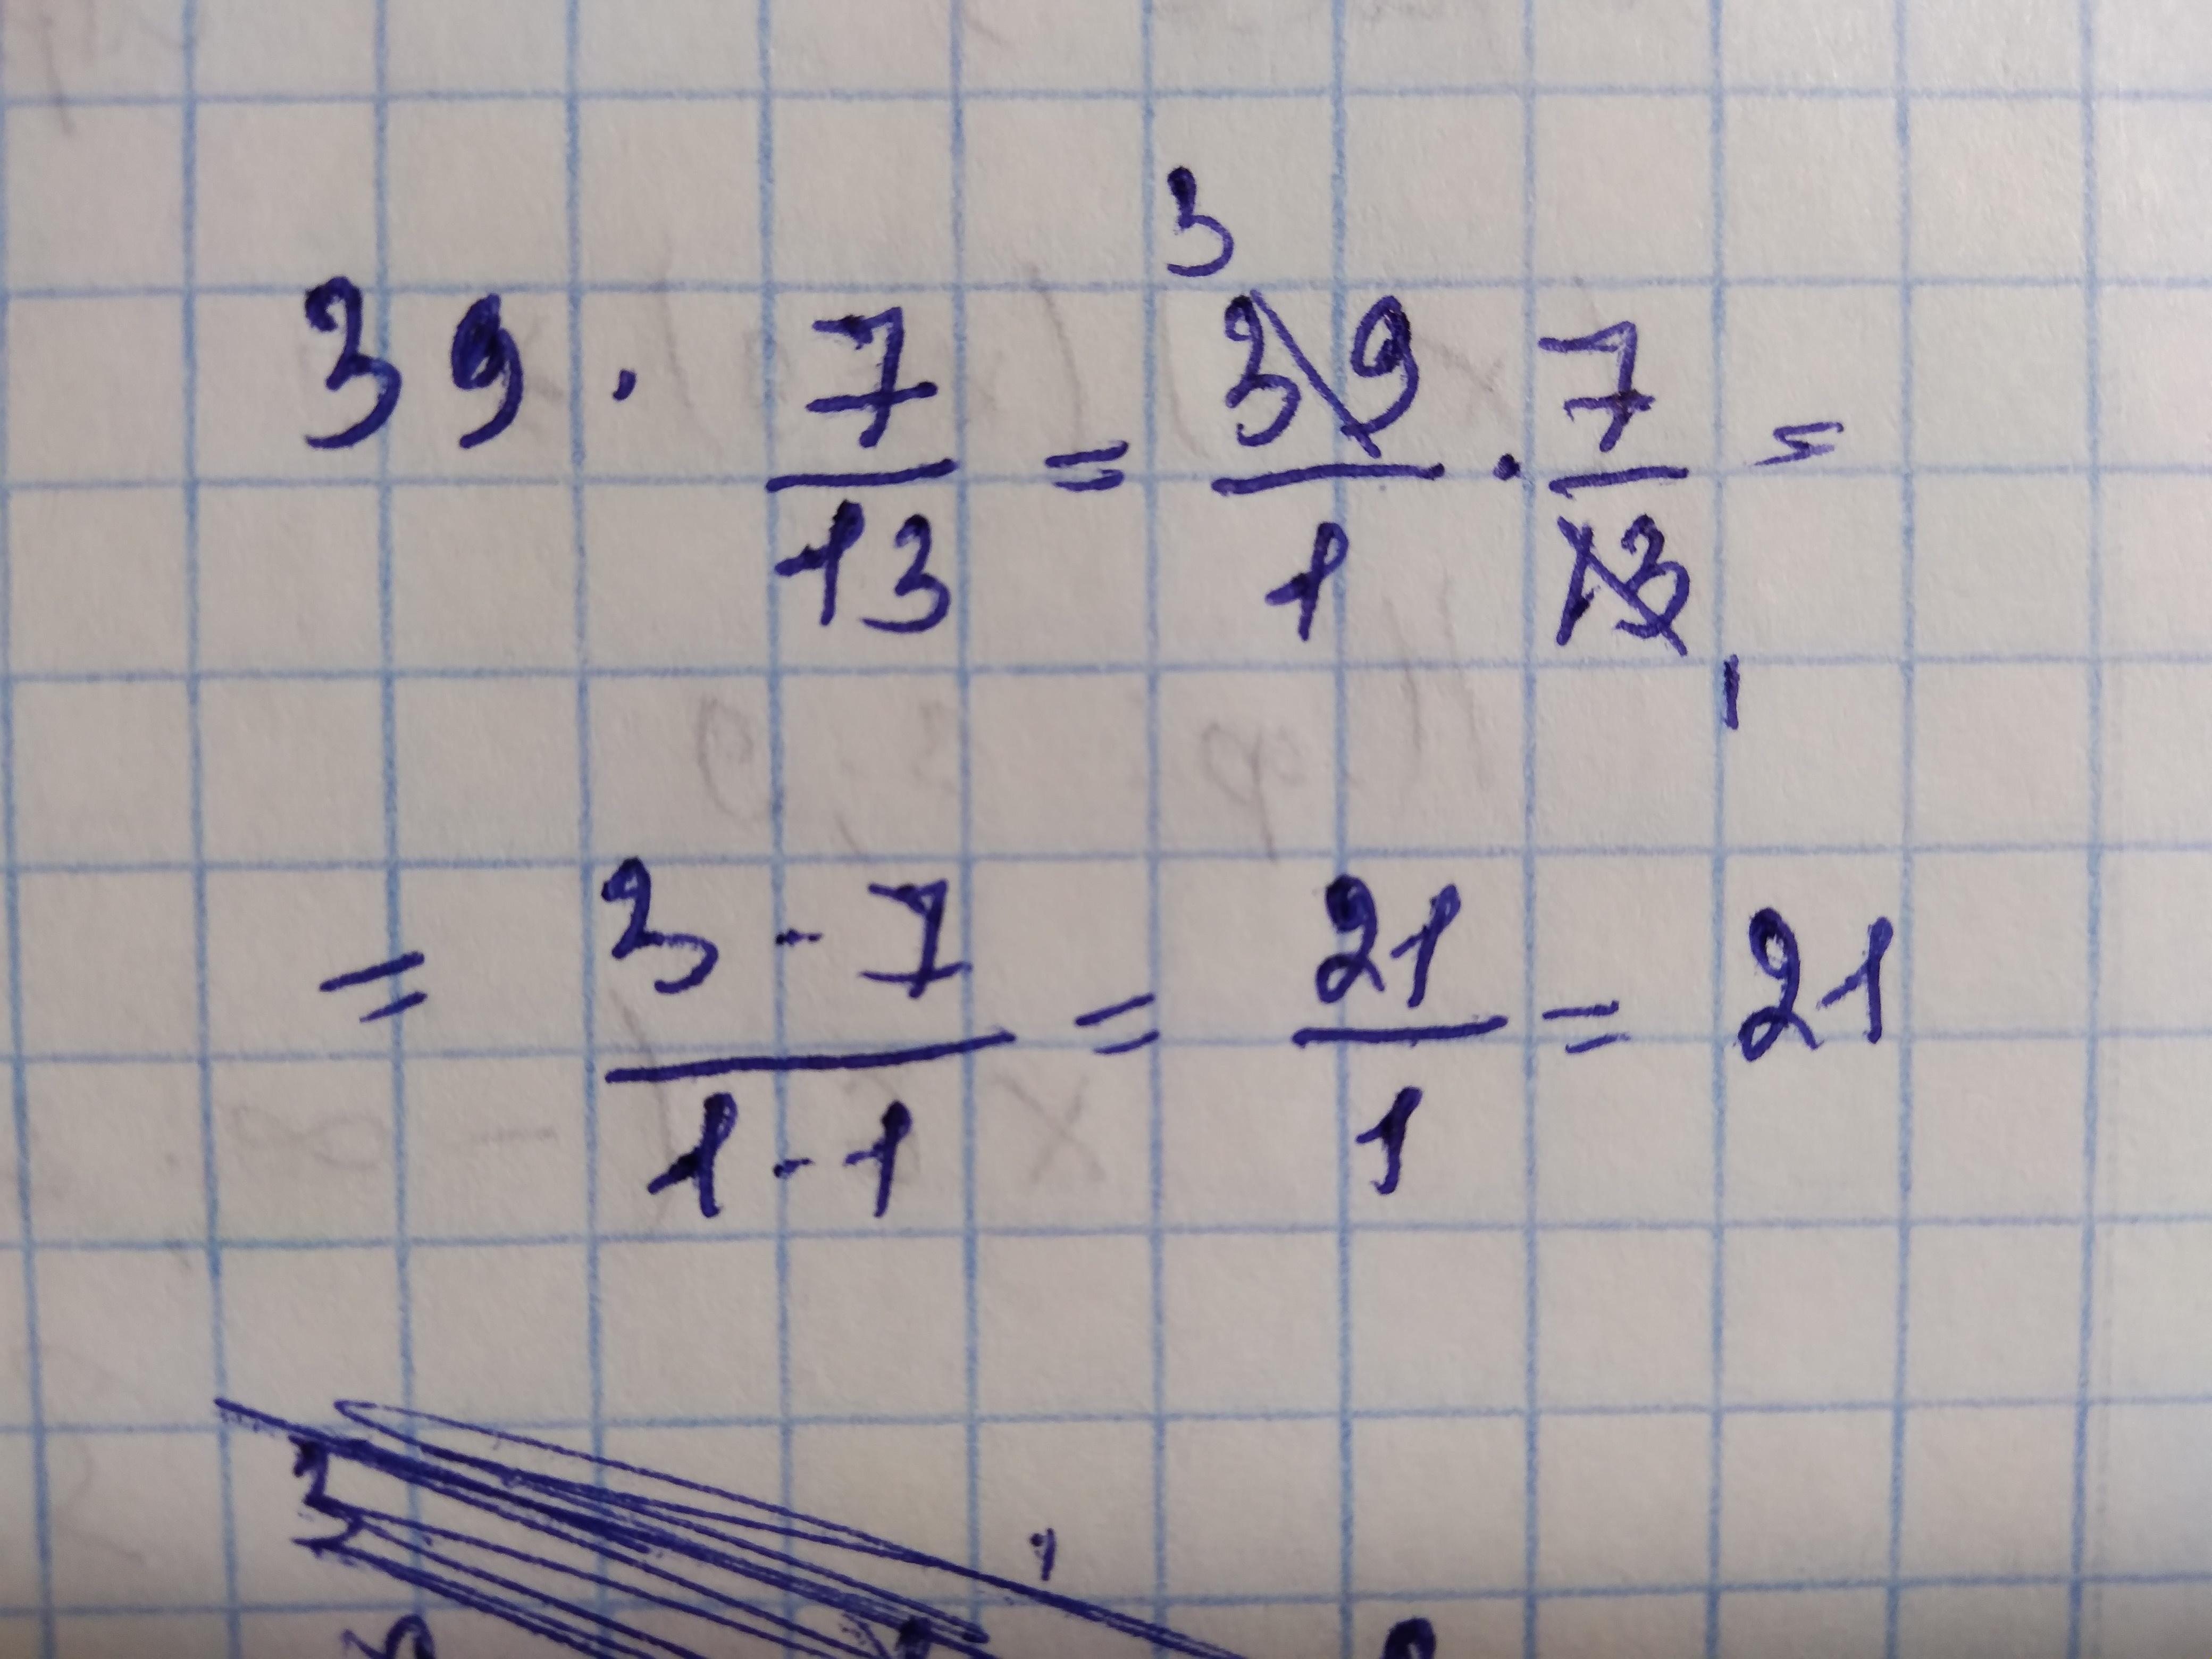 39 · 7/13 = 39/1 · 7/13 =
3
1
= 3 · 7 / 1 · 1 = 21/1 = 21
3